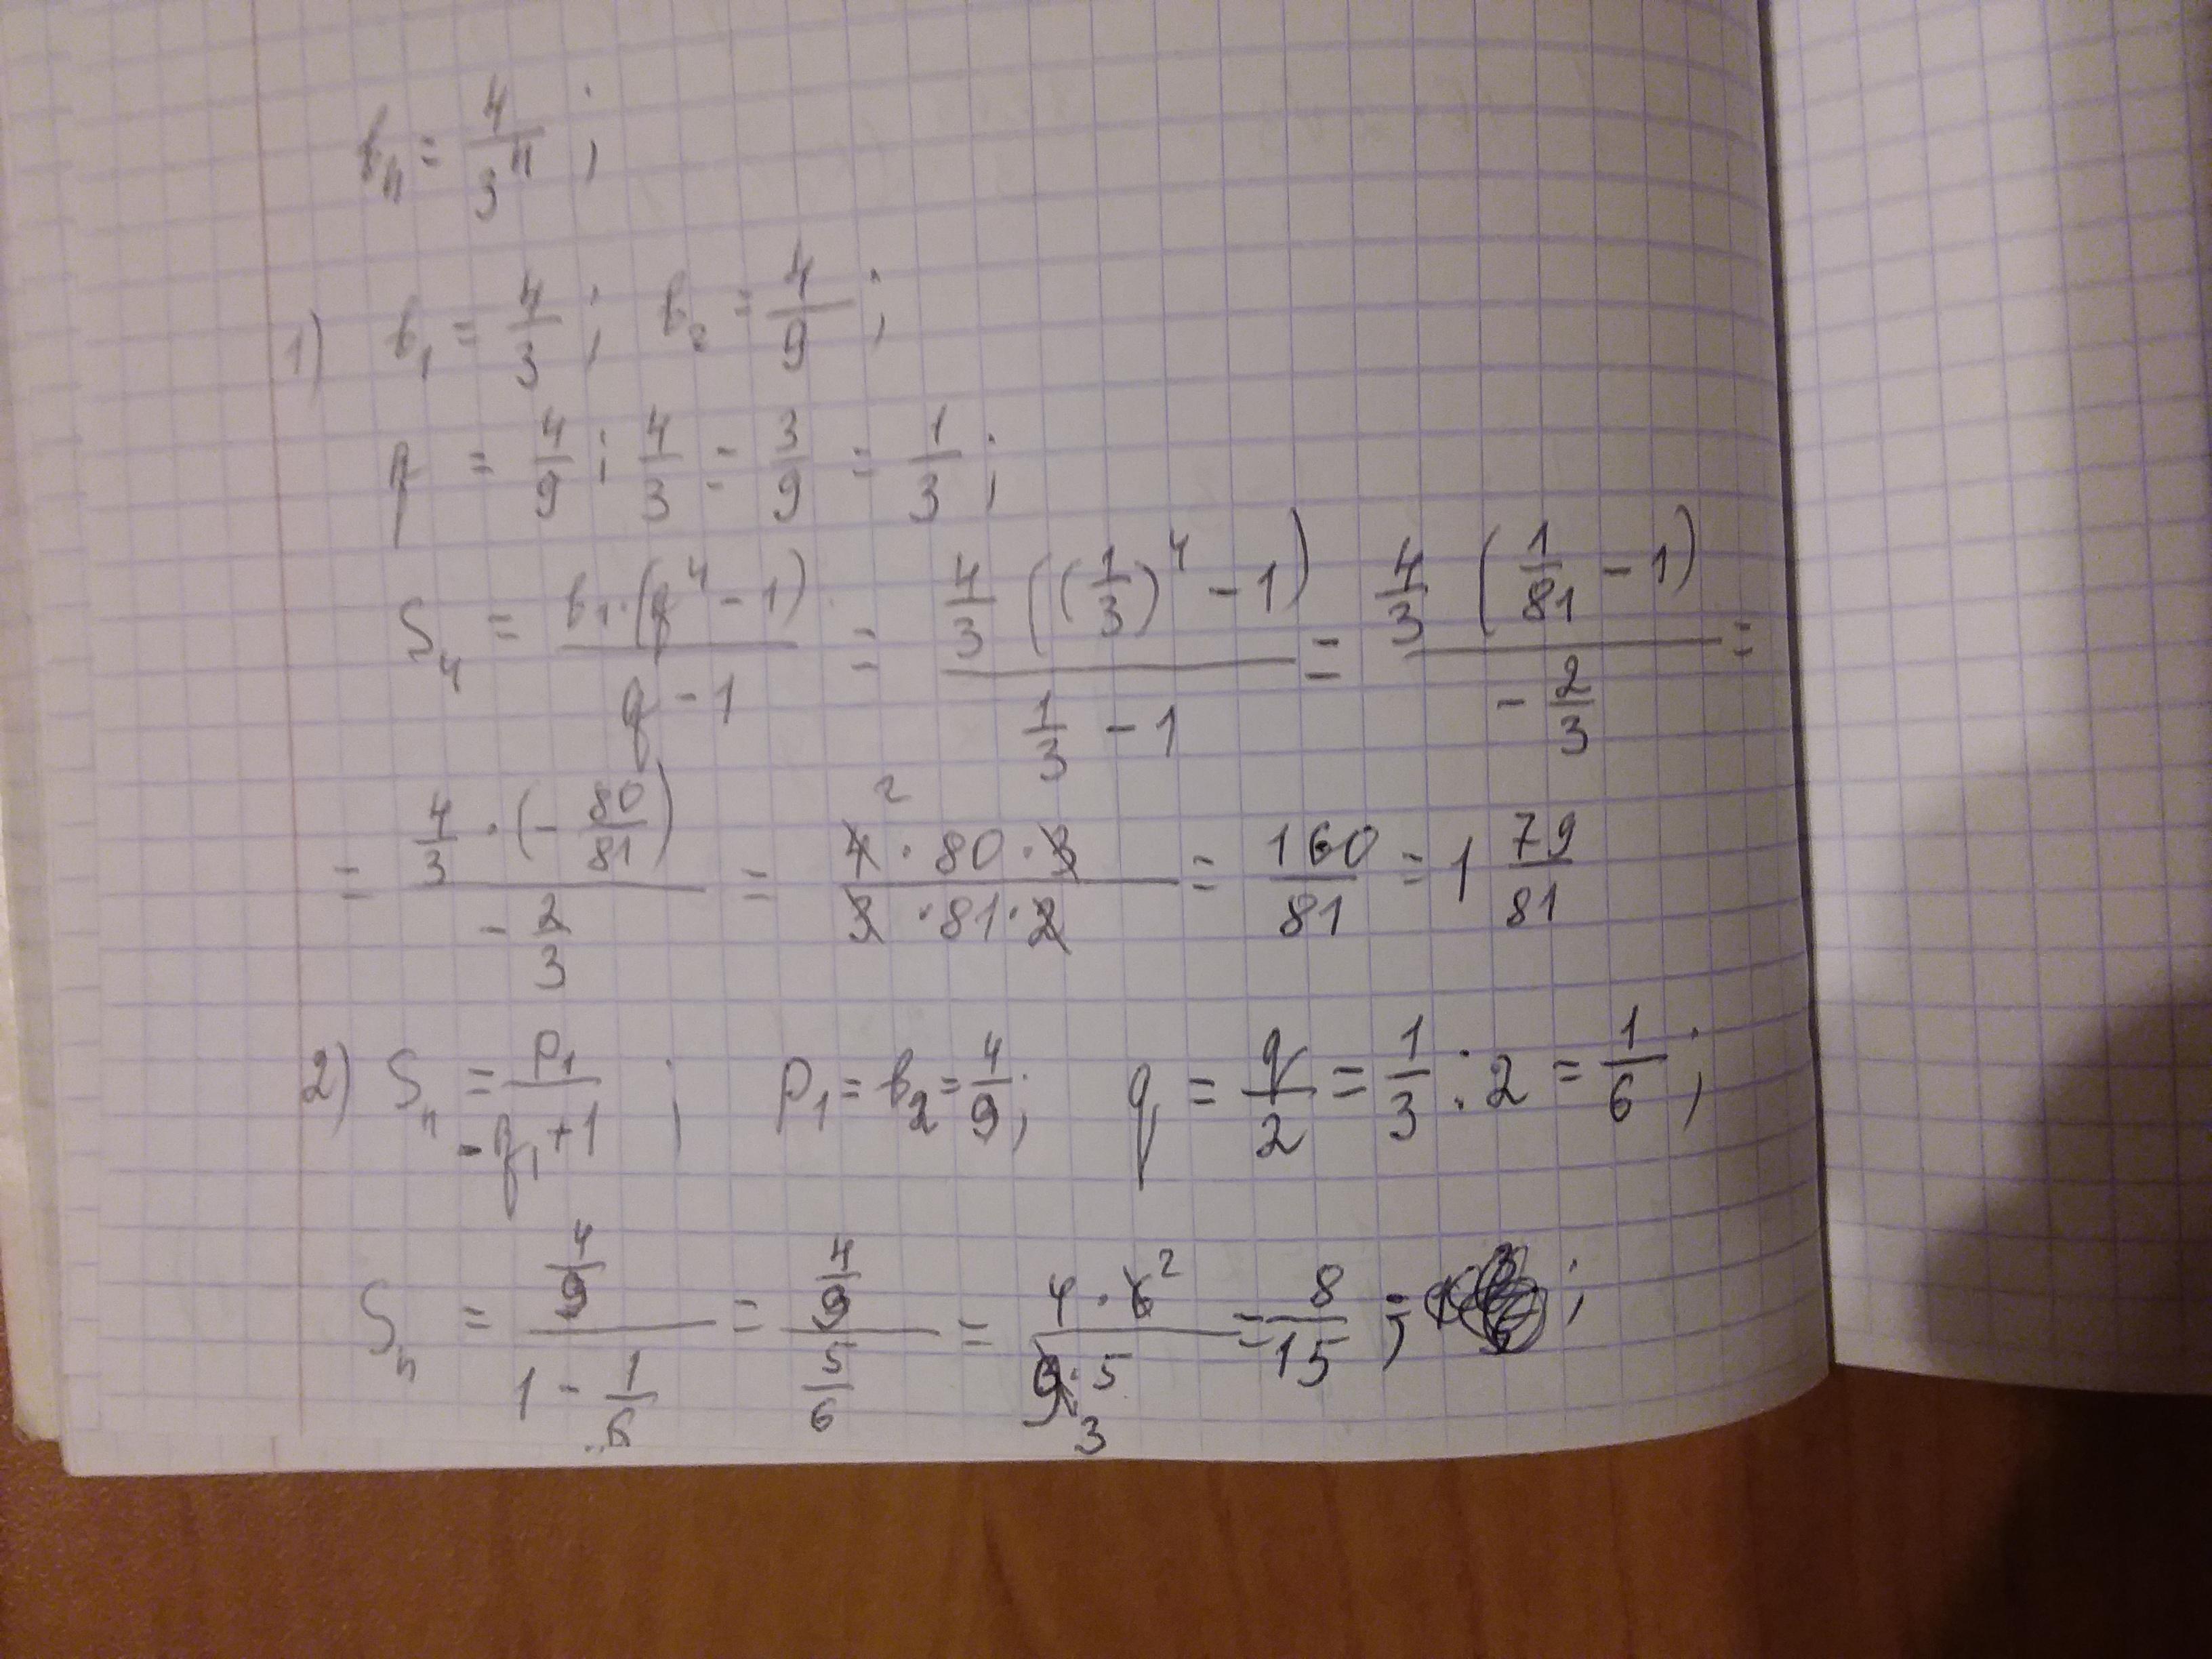 bₙ = 4/3ⁿ ;
1) b₁ = 4/3 ; b₂ = 4/9 ;
q = 4/9 : 4/3 = 3/9 = 1/3 ;
S₄ = b₁·(q⁴ - 1) / (q - 1) = 4/3 ((1/3)⁴ - 1) / (1/3 - 1) = 4/3 (1/81 - 1) / (- 2/3) =
= 4/3 · (- 80/81) / (- 2/3) = 4² · 80 · 3 / 3 · 81 · 2 = 160/81 = 1 79/81
2) Sₙ = p₁ / (-q₁ + 1) ; p₁ = b₂ = 4/9 ; q = q/2 = 1/3 : 2 = 1/6 ;
Sₙ = 4/9 / (1 - 1/6) = 4/9 / 5/6 = 4 · 6² / 9₃ · 5 = 8/15 ; ;